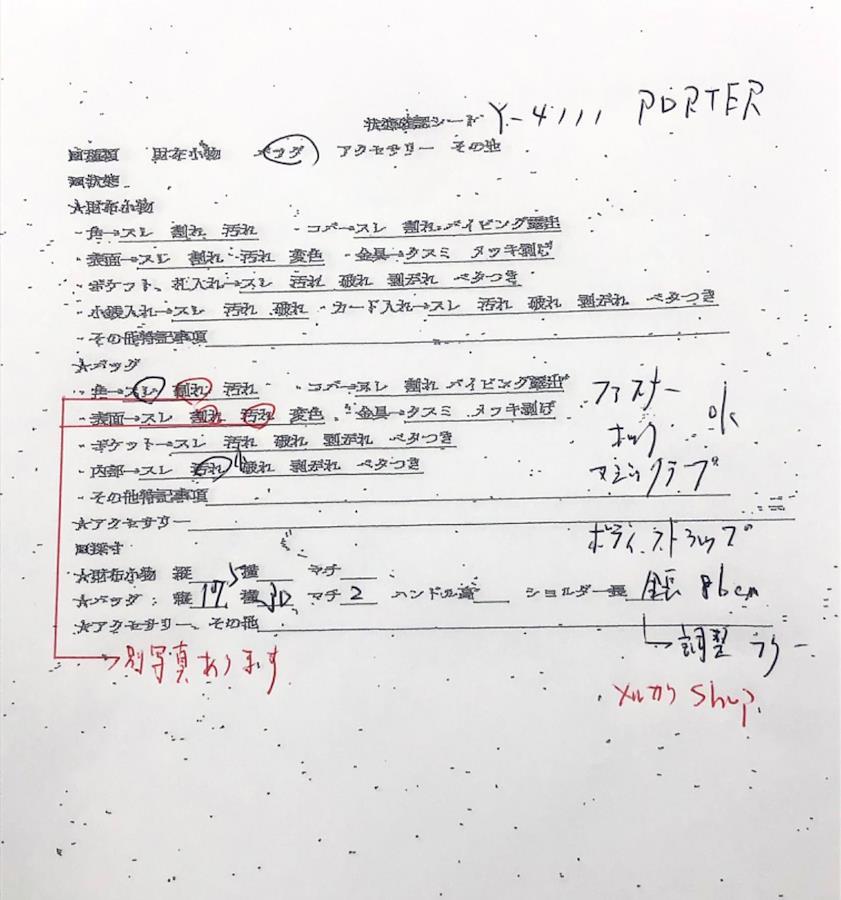 状態確認シート Y-4111 PORTER
■種類 財布小物 バッグ アクセサリー その他
■状態
★財布小物
・角→スレ 割れ 汚れ ・コバ→スレ 割れ パイピング露出
・表面→スレ 割れ 汚れ 変色 ・金具→クスミ メッキ剥げ
・ポケット、札入れ→スレ 汚れ 破れ 剥がれ ベタつき
・小銭入れ→スレ 汚れ 破れ ・カード入れ→スレ 汚れ 破れ 剥がれ ベタつき
・その他特記事項
★バッグ
・角→スレ 割れ 汚れ ・コバ→スレ 割れ パイピング露出 ファスナー
・表面→スレ 割れ 汚れ 変色 ・金具→クスミ メッキ剥げ ok
・ポケット→スレ 汚れ 破れ 剥がれ ベタつき ホック
・内部→スレ 汚れ 破れ 剥がれ ベタつき
・その他特記事項
★アクセサリー
■採寸 ボディストラップ
★財布小物 縦 横 マチ
★バッグ 縦 17.5 横 30 マチ 2 ハンドル高 ショルダー長 全長 86cm
★アクセサリー、その他
→調整
→別写真あります
メルカリ Shop